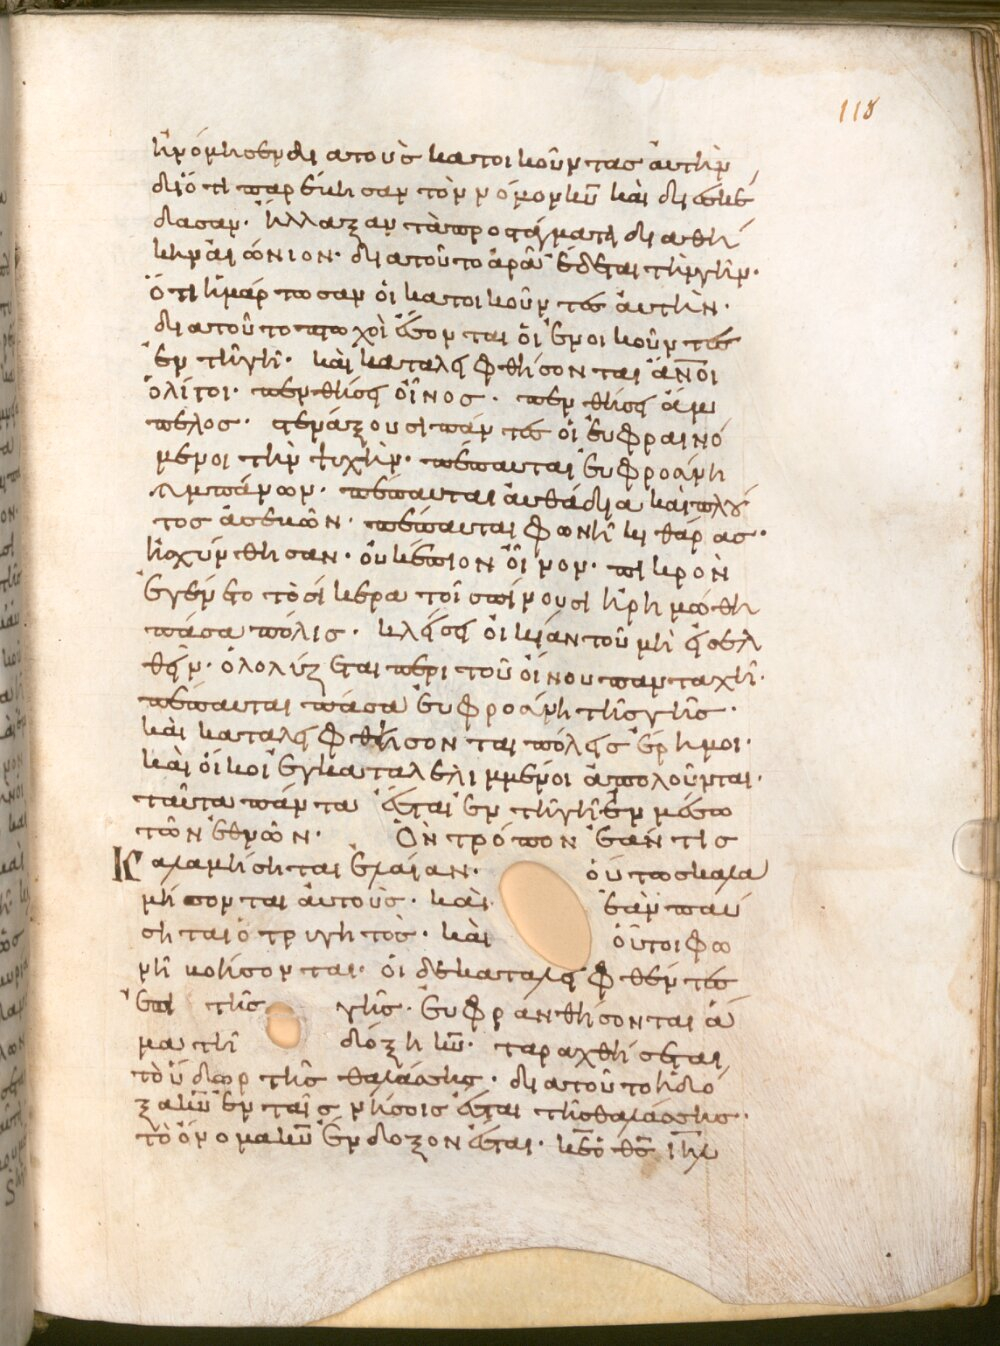 118
ἠνόμησεν διὰ τοὺς κατοικοῦντας ἀυτὴν,
διότι παρέβησαν τὸν νόμον κυ̅ καὶ διεσκέ
δασαν. ἤλλαξαν τὰ προστάγματα διαθή
κην ἀιώνιον. διατοῦτο ἀρὰ ἔδεται τὴν γῆν.
ὅτι ἡμάρτοσαν ὁι κατοικοῦντες ἀυτὴν.
διατοῦτο πτωχοὶ ἔσονται ὁι ἐνοικοῦντες
ἐν τῆ γῆ. καὶ καταλειφθήσονται ἀν̅οι
ὀλίγοι. πενθήσει ὄινος. πενθήσει ἄμ
πελος. στενάξουσι πάντες ὁι ἐυφραινό
μενοι τὴν ψυχήν. πέπαυται ἐυφροσύνη
τυμπάνων. πέπαυται ἀυθάδια καὶ πλοῦ
τος ἀσεβῶν. πέπαυται φωνὴ κιθάρας.
ἠσχύνθησαν. ὀυκ ἔπιον ὄινον. πικρὸν
ἐγένετο τὸ σίκερα τοῖς πίνουσι ἠρημώθη
πᾶσα πόλις. κλείσει ὀικίαν τοῦ μὴ ἐισελ
θεῖν. ὀλολύζεται περι τοῦ ὀίνου πανταχῆ.
πέπαυται πᾶσα ἐυφροσύνη τῆς γῆς.
καὶ καταλειφθήσονται πόλεις ἔρημοι.
καὶ ὄικοι ἐγκαταλελιμμένοι ἀπολοῦνται.
ταῦτα πάντα ἔσται ἐν τῆ γῆ ἐν μέσω
τῶν ἐθνῶν. Ὃν τρόπον ἐάν τις
Καλαμήσηται ἐλαίαν. ὅυτως καλα
μήσονται ἀυτούς. καὶ ἐὰν παύ
σηται ὁ τρυγητὸς. καὶ ὅυτοι φω
νῆ βοήσονται. ὁι δὲ καταλειφθέντες
ἐπὶ τῆς γῆς. ἐυφρανθήσονται ἅ
μα τῆ δόξη κυ̅. ταραχθήσεται
τὸ ὕδωρ τῆς θαλάσσης. διατοῦτο ἡ δό
ξα κυ̅ ἐν ταῖς νήσοις ἔσται τῆς θαλάσσης.
τὸ ὄνομα κυ̅ ἔνδοξον ἔσται. κς̅ ὁ θς̅ ιη̅λ